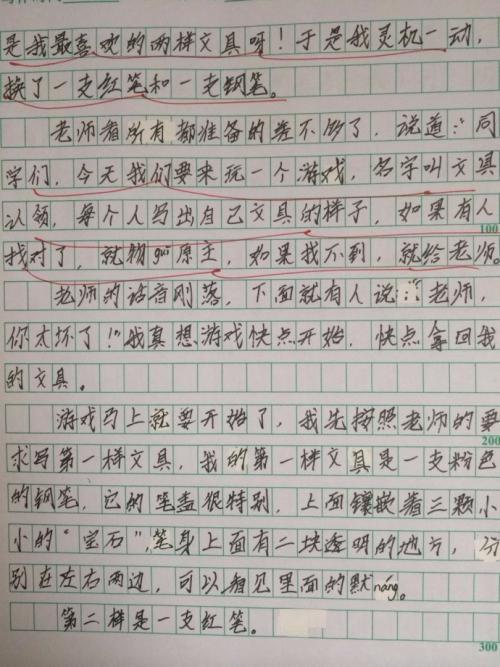 是我最喜欢的两样文具呀！于是我灵机一动，
换了一支红笔和一支钢笔。
老师看所有都准备的差不够了，说道：“同
学们，今天我们要来玩一个游戏，名字叫文具
认领，每个人写出自己文具的样子，如果有人
100
找对了，就物guī原主，如果找不到，就给老师。
老师的话音刚落，下面就有人说：“老师，
你太坏了！”我真想游戏快点开始，快点拿回我
的文具。
游戏马上就要开始了，我先按照老师的要
200
求写第一样文具，我的第一样文具是一支粉色
的钢笔，它的笔盖很特别，上面镶嵌着三颗小
小的“宝石”，笔身上面有二块透明的地方，分
别在左右两边，可以看见里面的默náng。
第二样是一支红笔。
300